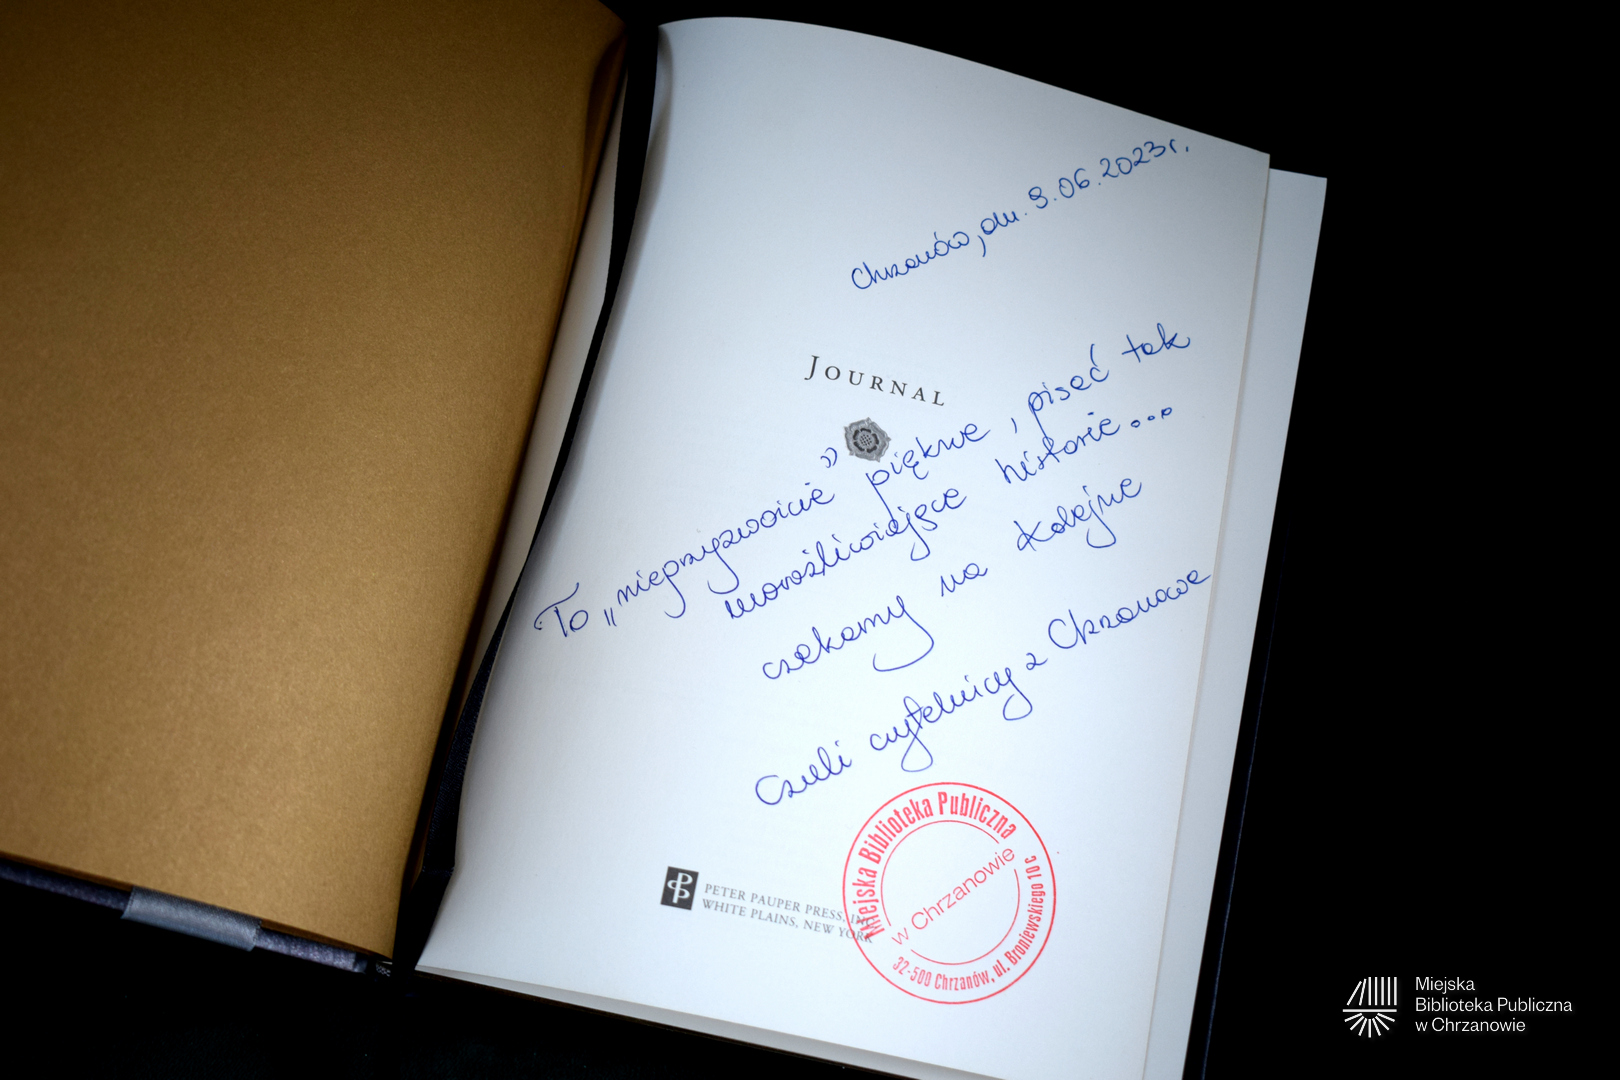 Chrzanów, dn. 9.06.2023r.
JOURNAL
To „nieprzyzwoicie” piękne, pisać tak
uwrażliwiające historie...
czekamy na kolejne
Czuli czytelnicy z Chrzanowa
PETER PAUPER PRESS, INC.
WHITE PLAINS, NEW YORK
Miejska Biblioteka Publiczna
w Chrzanowie
32-500 Chrzanów, ul. Broniewskiego 10 c
Miejska
Biblioteka Publiczna
w Chrzanowie